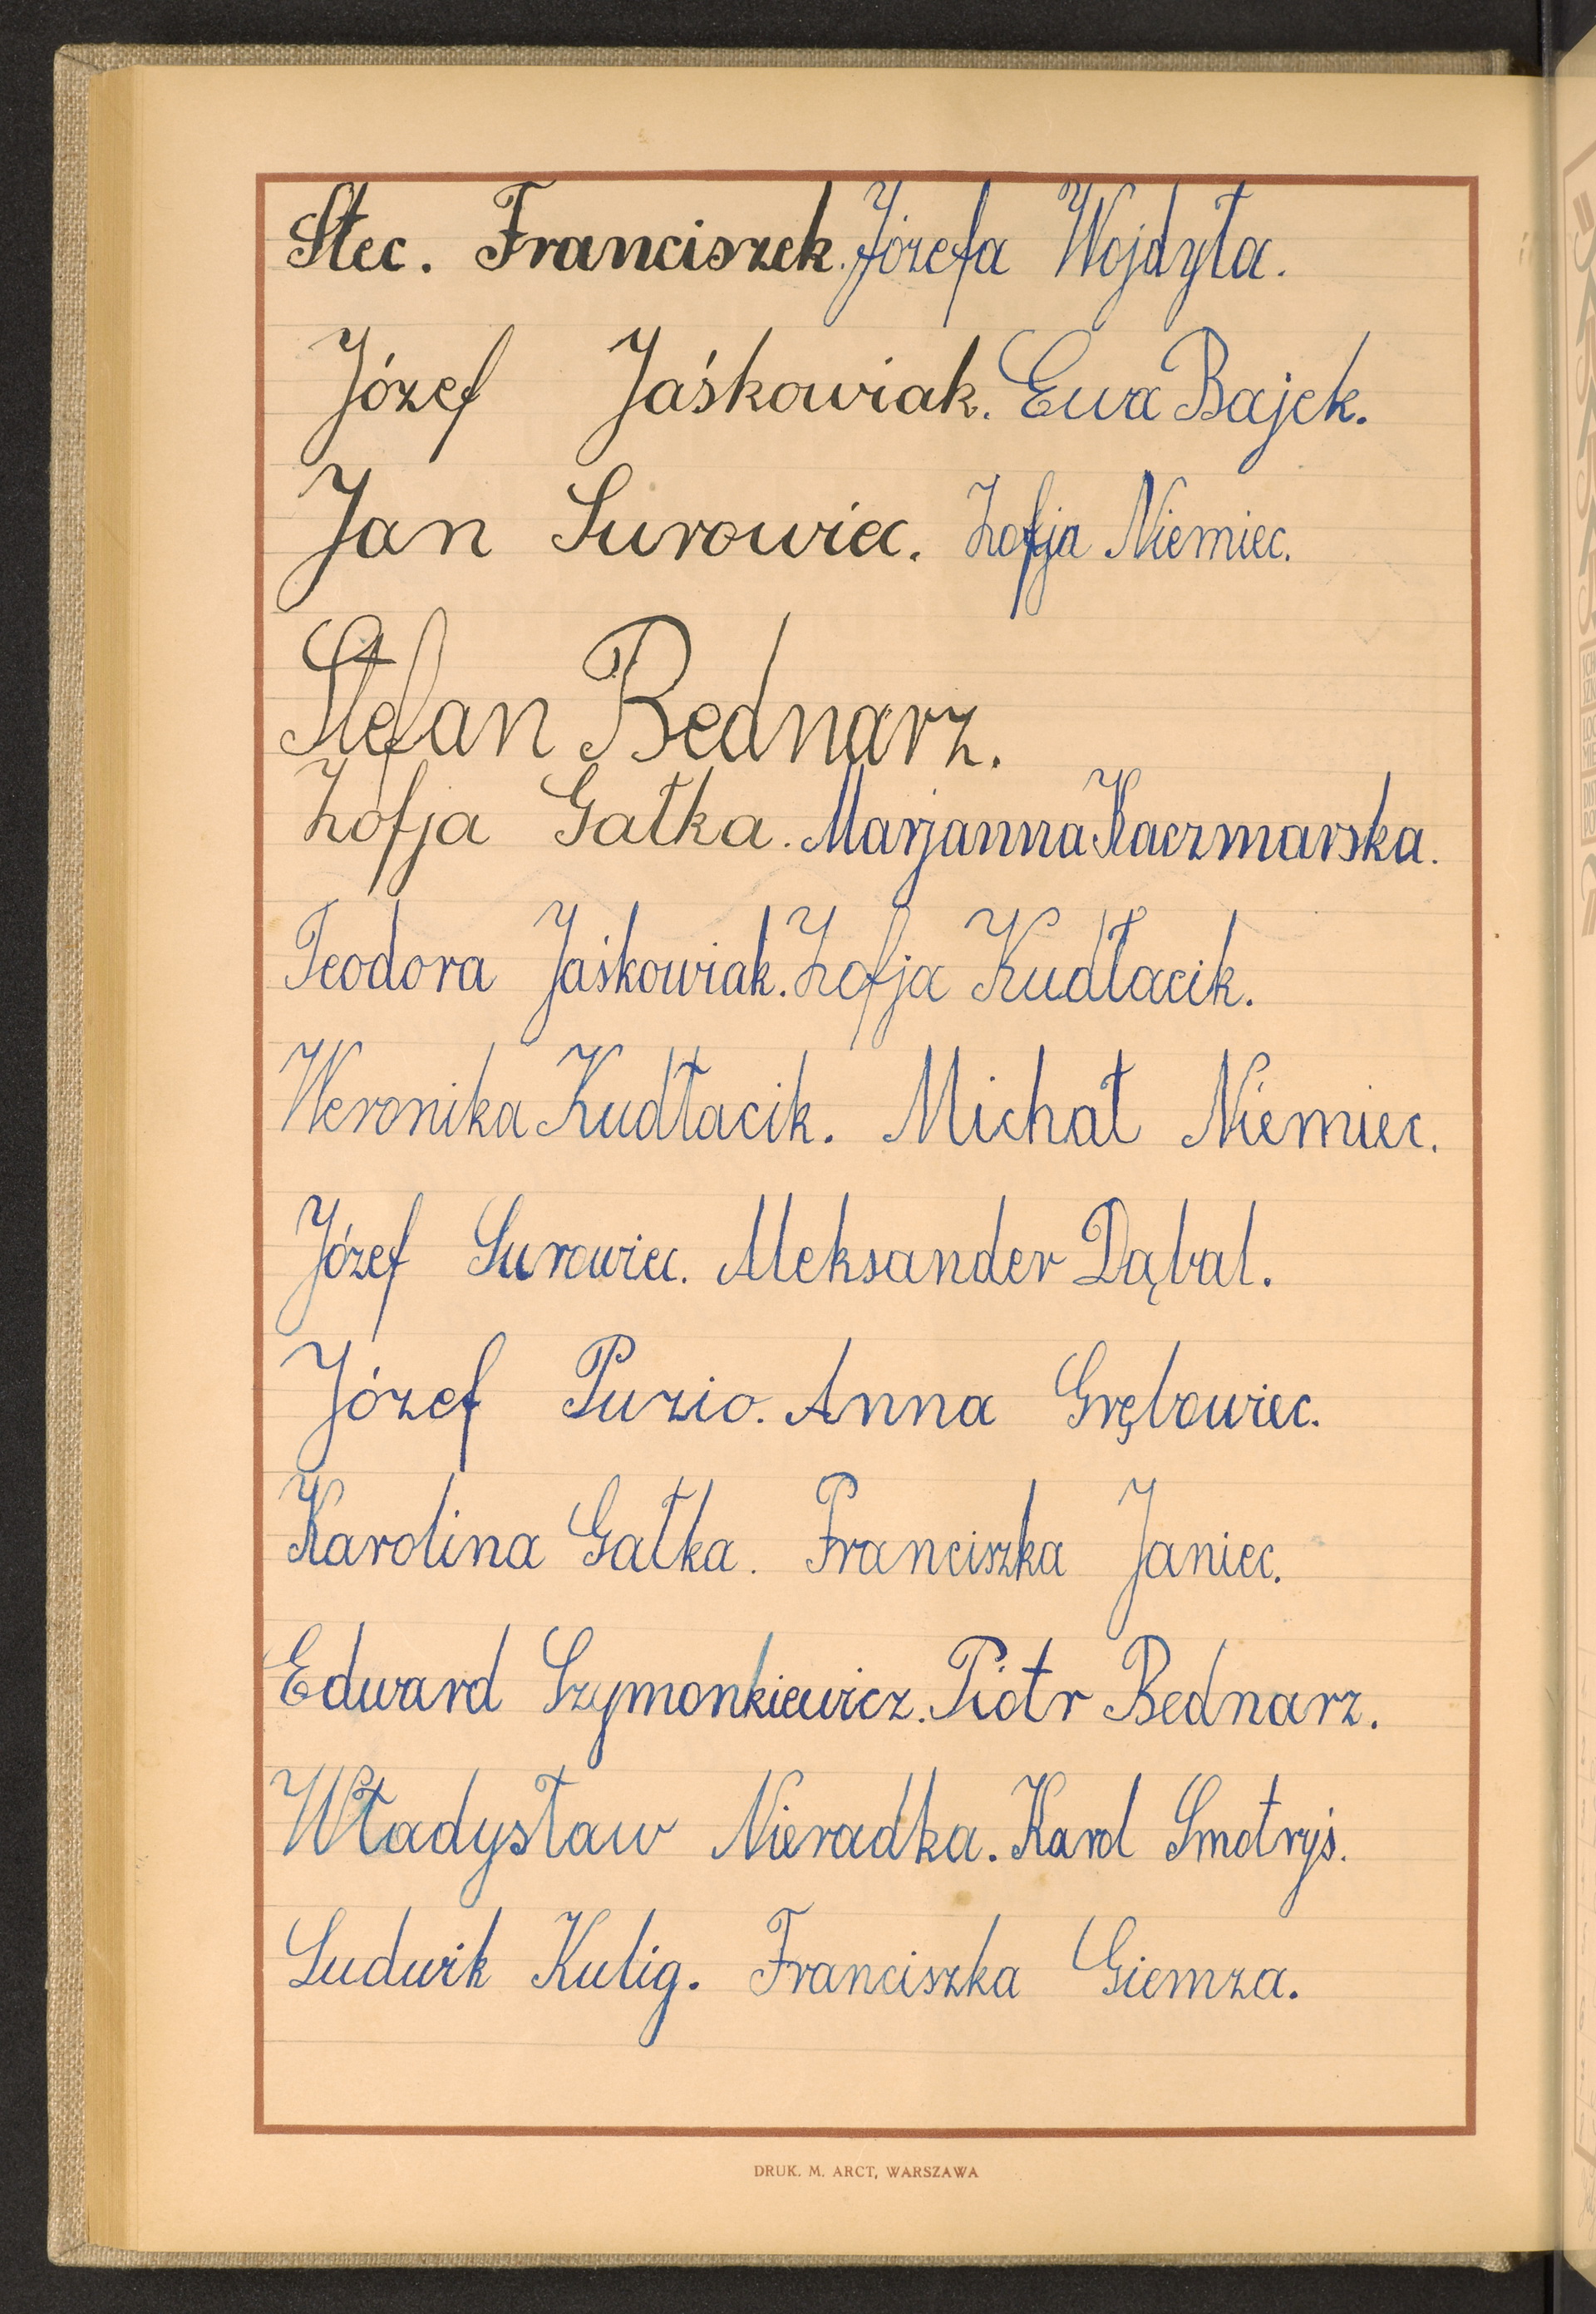 Stec. Franciszek. Józefa Wojdyła.
Józef Jaśkowiak. Ewa Bajek.
Jan Surowiec. Zofja Niemiec.
Stefan Bednarz.
Zofja Gałka. Marjanna Kaczmarska.
Teodora Jaśkowiak. Zofja Kudłacik.
Weronika Kudłacik. Michał Niemiec.
Józef Surowiec. Aleksander Dąbal.
Józef Puzio. Anna Grębowiec.
Karolina Gałka. Franciszka Janiec.
Edward Szymonkiewicz. Piotr Bednarz.
Władysław Nieradka. Karol Smotryś.
Ludwik Kulig. Franciszka Giemza.
DRUK. M. ARCT, WARSZAWA